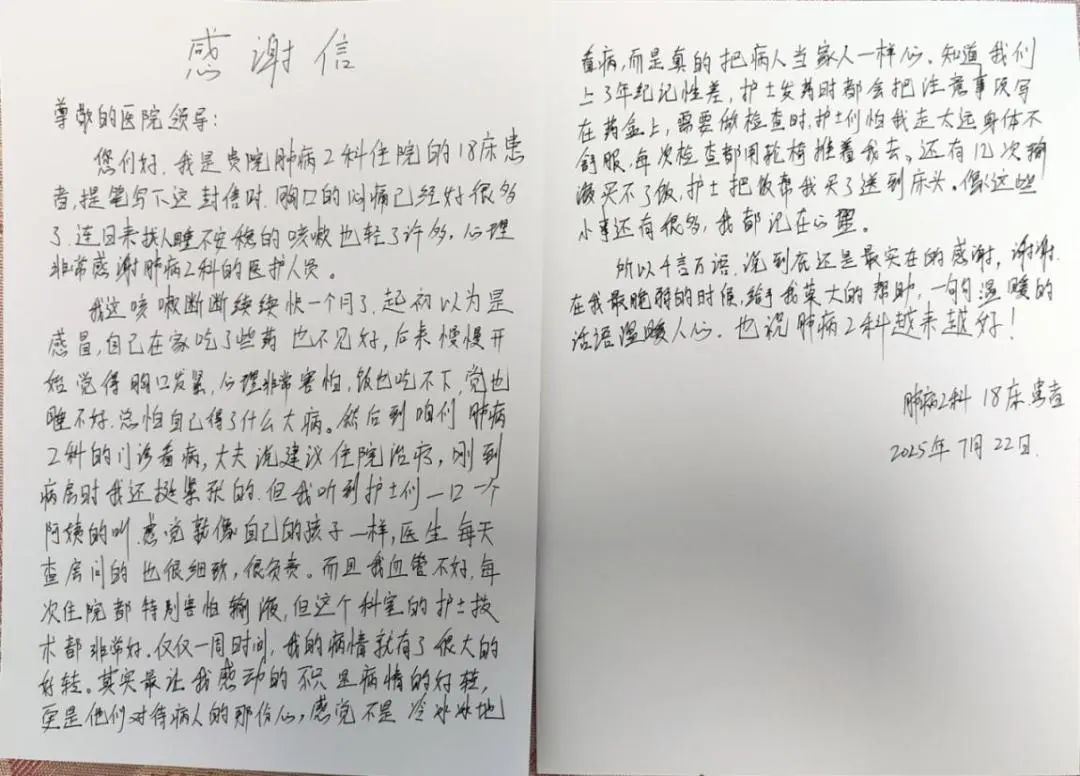 感谢信
尊敬的医院领导：
您们好．我是贵院肺病2科住院的18床患
者，提笔写下这封信时．胸口的闷痛已经好很多
了．连日来扰人睡不安稳的咳嗽也轻了许多，心理
非常感谢肺病2科的医护人员。
我这咳嗽断断续续快一个月了．起初以为是
感冒，自己在家吃了些药也不见好，后来慢慢开
始觉得胸口发紧，心理非常害怕，饭也吃不下，觉也
睡不好．总怕自己得了什么大病。然后到咱们肺病
2科的门诊看病，大夫说建议住院治疗，刚到
病房时我还挺紧张的．但我听到护士们一口一个
阿姨的叫．感觉就像自己的孩子一样，医生每天
查房问的也很细致，很负责。而且我血管不好，每
次住院都特别害怕输液，但这个科室的护士技
术都非常好．仅仅一周时间，我的病情就有了很大的
好转。其实最让我感动的不只是病情的好转，
更是他们对待病人的那份心，感觉不是冷冰冰地
看病，而是真的把病人当家人一样心。知道我们
上了年纪记性差，护士发药时都会把注意事项写
在药盒上，需要做检查时，护士们怕我走太远身体不
舒服，每次检查都用轮椅推着我去。还有几次输
液买不了饭，护士把饭帮我买了送到床头。像这些
小事还有很多，我都记在心里。
所以千言万语．说到底还是最实在的感谢，谢谢．
在我最脆弱的时候，给予我莫大的帮助，一句句温暖的
话语温暖人心．也祝肺病2科越来越好！
肺病2科 18床患者
2025年7月22日．